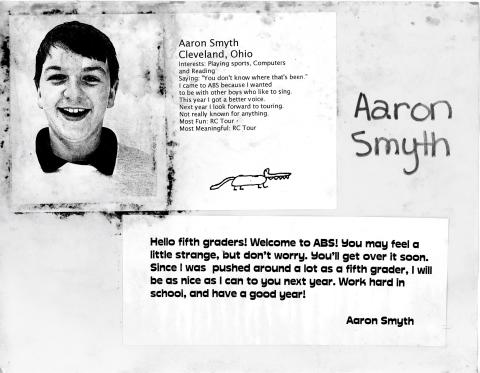 Aaron Smyth
Cleveland, Ohio
Interests: Playing sports, Computers
and Reading
Saying: "You don't know where that's been."
I came to ABS because I wanted
to be with other boys who like to sing.
This year I got a better voice.
Next year I look forward to touring.
Not really known for anything.
Most Fun: RC Tour
Most Meaningful: RC Tour
Aaron
Smyth
Hello fifth graders! Welcome to ABS! You may feel a
little strange, but don't worry. You'll get over it soon.
Since I was pushed around a lot as a fifth grader, I will
be as nice as I can to you next year. Work hard in
school, and have a good year!
Aaron Smyth